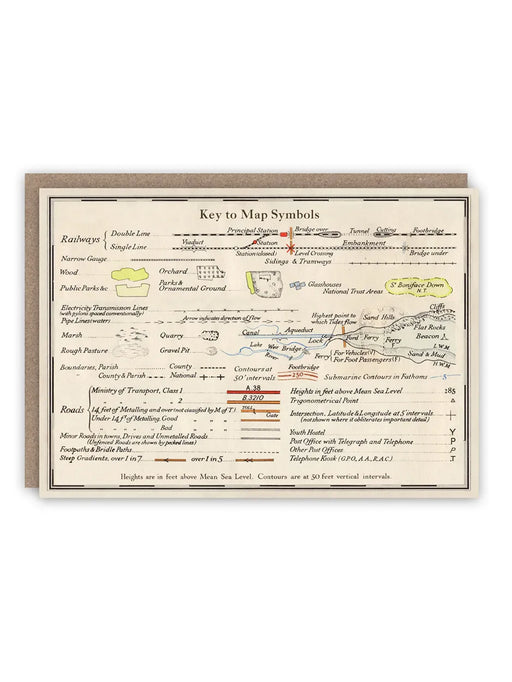 Key to Map Symbols
Railways
Double Line
Principal Station
Bridge over
Tunnel
Cutting
Footbridge
Single Line
Viaduct
Station
Station (closed)
Level Crossing
Embankment
Bridge under
Narrow Gauge
Sidings & Tramways
Wood
Orchard
Glasshouses
St Boniface Down
N.T.
Public Parks &c
Parks &
Ornamental Ground
National Trust Areas
Electricity Transmission Lines
(with pylons spaced conventionally)
Pipe Lines
Arrow indicates direction of flow
Highest point to
which Tides flow
Sand Hills
Cliffs
Flat Rocks
Marsh
Quarry
Canal
Aqueduct
Lock
Ford
Ferry
Ferry
Beacon
L.W.M
Rough Pasture
Gravel Pit
Lake
Weir
Bridge
River
Ferry
For Vehicles (V)
For Foot Passengers (F)
Sand & Mud
H.W.M
Boundaries, Parish
County
County & Parish
National
Contours at
50' intervals
Footbridge
250
Submarine Contours in Fathoms
5
Roads
Ministry of Transport, Class 1
A.38
" 2
B.3210
14 feet of Metalling and over (not classified by M.of T.)
TOLL
Under 14 ft of Metalling, Good
Gate
" Bad
Minor Roads in towns, Drives and Unmetalled Roads
(Unfenced Roads are shown by pecked lines)
Footpaths & Bridle Paths
Steep Gradients, over 1 in 7
over 1 in 5
Heights in feet above Mean Sea Level
285
Trigonometrical Point
Intersection, Latitude & Longitude at 5' intervals
(not shown where it obliterates important detail)
Youth Hostel
Y
Post Office with Telegraph and Telephone
P
Other Post Offices
P
Telephone Kiosk (G.P.O, A.A, R.A.C)
T
Heights are in feet above Mean Sea Level. Contours are at 50 feet vertical intervals.